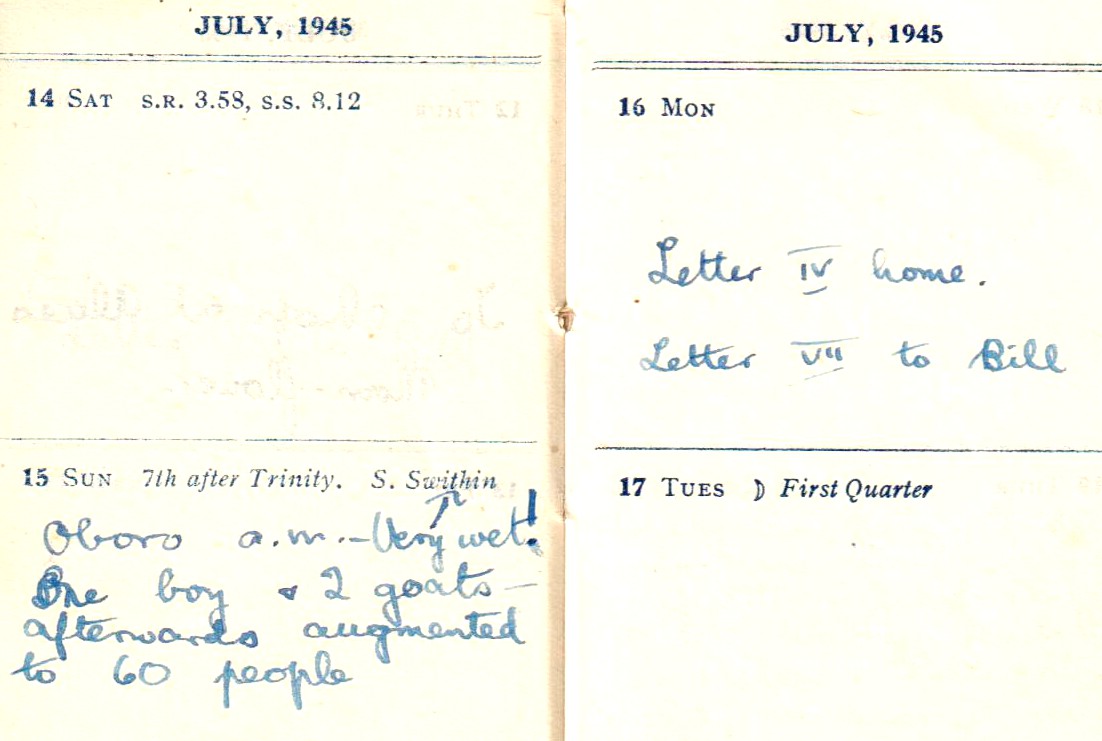 JULY, 1945
14 SAT S.R. 3.58, S.S. 8.12
15 SUN 7th after Trinity. S. Swithin
Oboro a.m. – Very wet!
One boy & 2 goats –
afterwards augmented
to 60 people
JULY, 1945
16 MON
Letter IV home.
Letter VII to Bill
17 TUES ☽ First Quarter